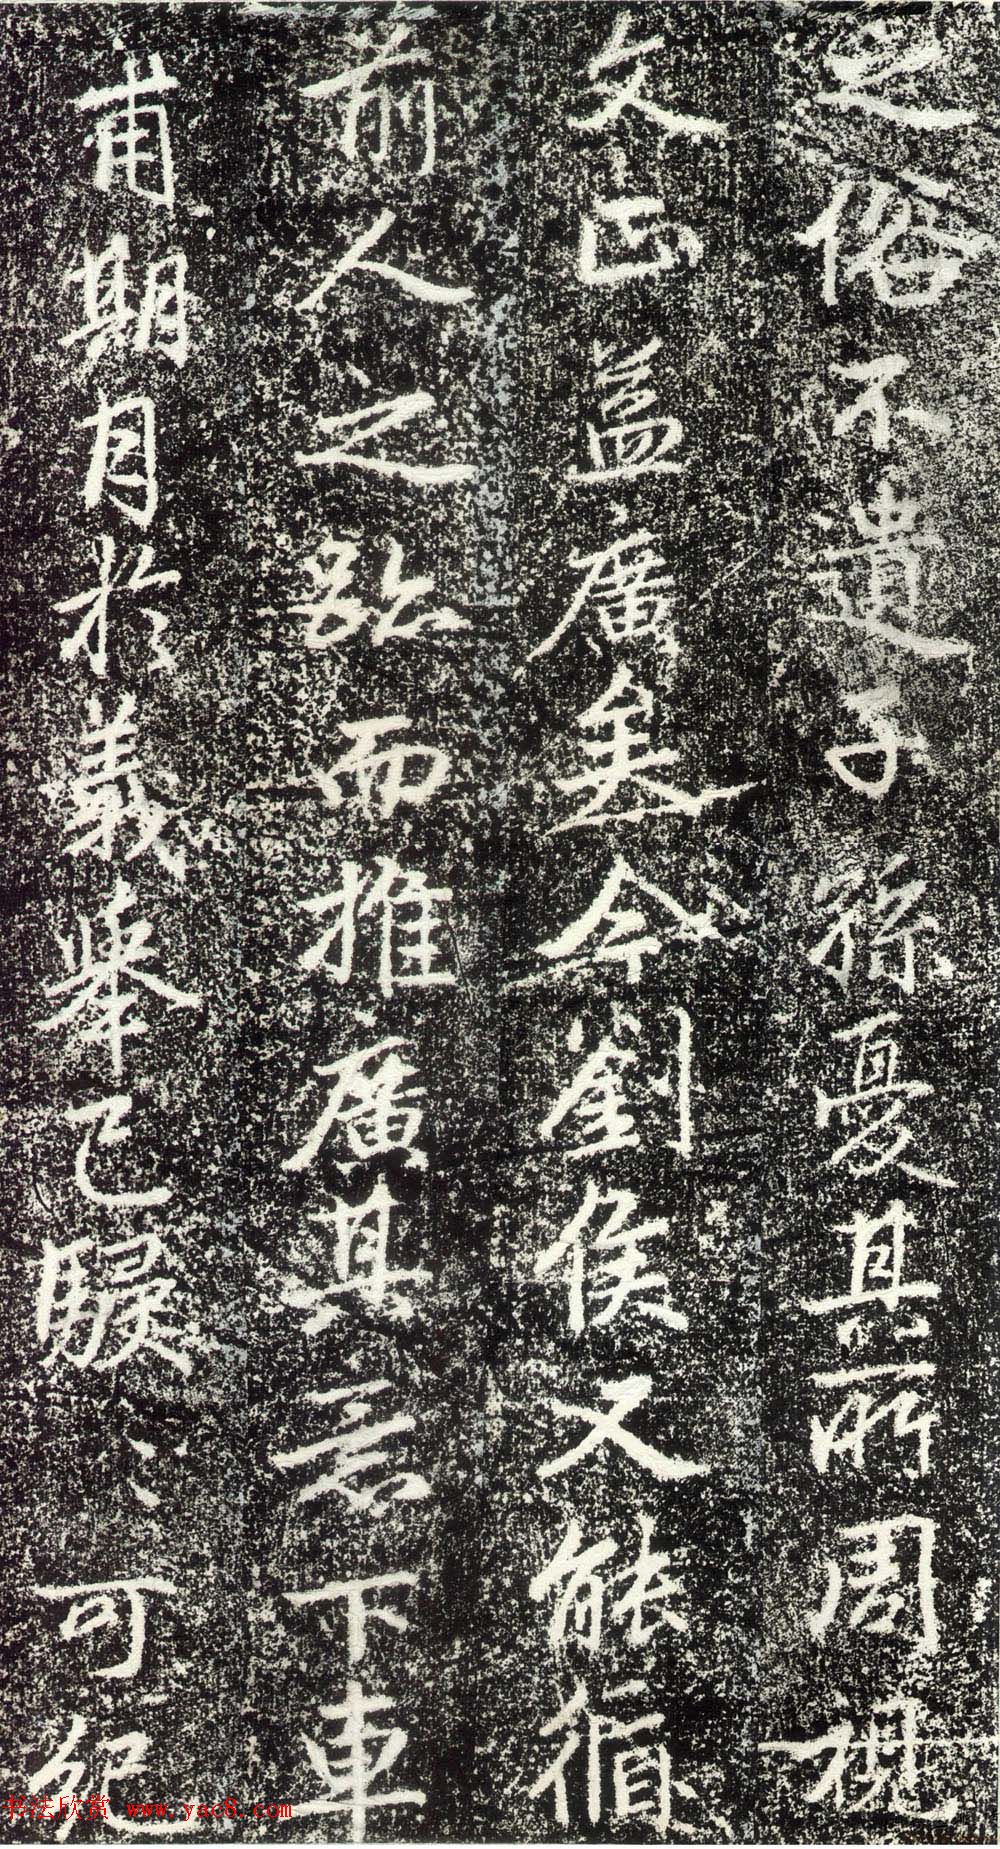 之俗不遺子孫憂其所周視
文正益廣矣今劉侯又能循
前人之跡而推廣其意下車
甫期月於義舉已歸〻可紀
书法欣赏 www.yac8.com